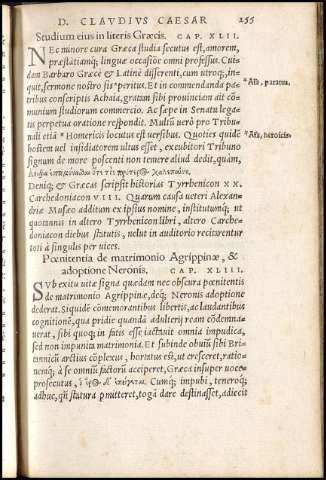 D. CLAVDIVS CAESAR 255
Studium eius in literis Græcis. CAP. XLII.
NEC minore cura Græca studia secutus est, amorem,
præstãtiamq; linguæ occasiõe omni professus. Cui-
dam Barbaro Græcè & Latinè disserenti, cum utroq;, in-
quit, sermone nostro sis peritus. Et in commendanda pa-
tribus conscriptis Achaia, gratam sibi prouinciam ait cõ-
munium studiorum commercio. Ac sæpe in Senatu lega-
tis perpetua oratione respondit. Multũ uerò pro Tribu-
nali etiã Homericis locutus est uersibus. Quoties quidẽ
hostem uel insidiatorem ultus esset, excubitori Tribuno
signum de more poscenti non temere aliud dedit, quàm,
Deniq; & Græcas scripsit historias Tyrrhenicon XX.
Carchedoniacon VIII. Quarum causa ueteri Alexan-
driæ Museo additum ex ipsius nomine, institutumq; ut
quotannis in altero Tyrrhenicon libri, altero Carche-
doniacon diebus statutis, uelut in auditorio recitarentur
toti à singulis per uices.
Pœnitentia de matrimonio Agrippinæ, &
adoptione Neronis. CAP. XLIII.
SVB exitu uitæ signa quædam nec obscura pœnitentis
de matrimonio Agrippinæ, deq; Neronis adoptione
dederat. Siquidẽ cõmemorantibus libertis, ac laudantibus
cognitionẽ, qua pridie quandã adulterij ream cõdemna-
uerat, sibi quoq; in fatis esse iactauit omnia impudica,
sed non impunita matrimonia. Et subinde obuiũ sibi Bri-
tannicũ arctius cõplexus, hortatus est, ut cresceret, ratio-
nemq; à se omniũ factorũ acciperet, Græca insuper uoce
prosecutus, Cumq; impubi, teneroq;
adhuc, qñ statura pmitteret, togã dare destinasset, adiecit